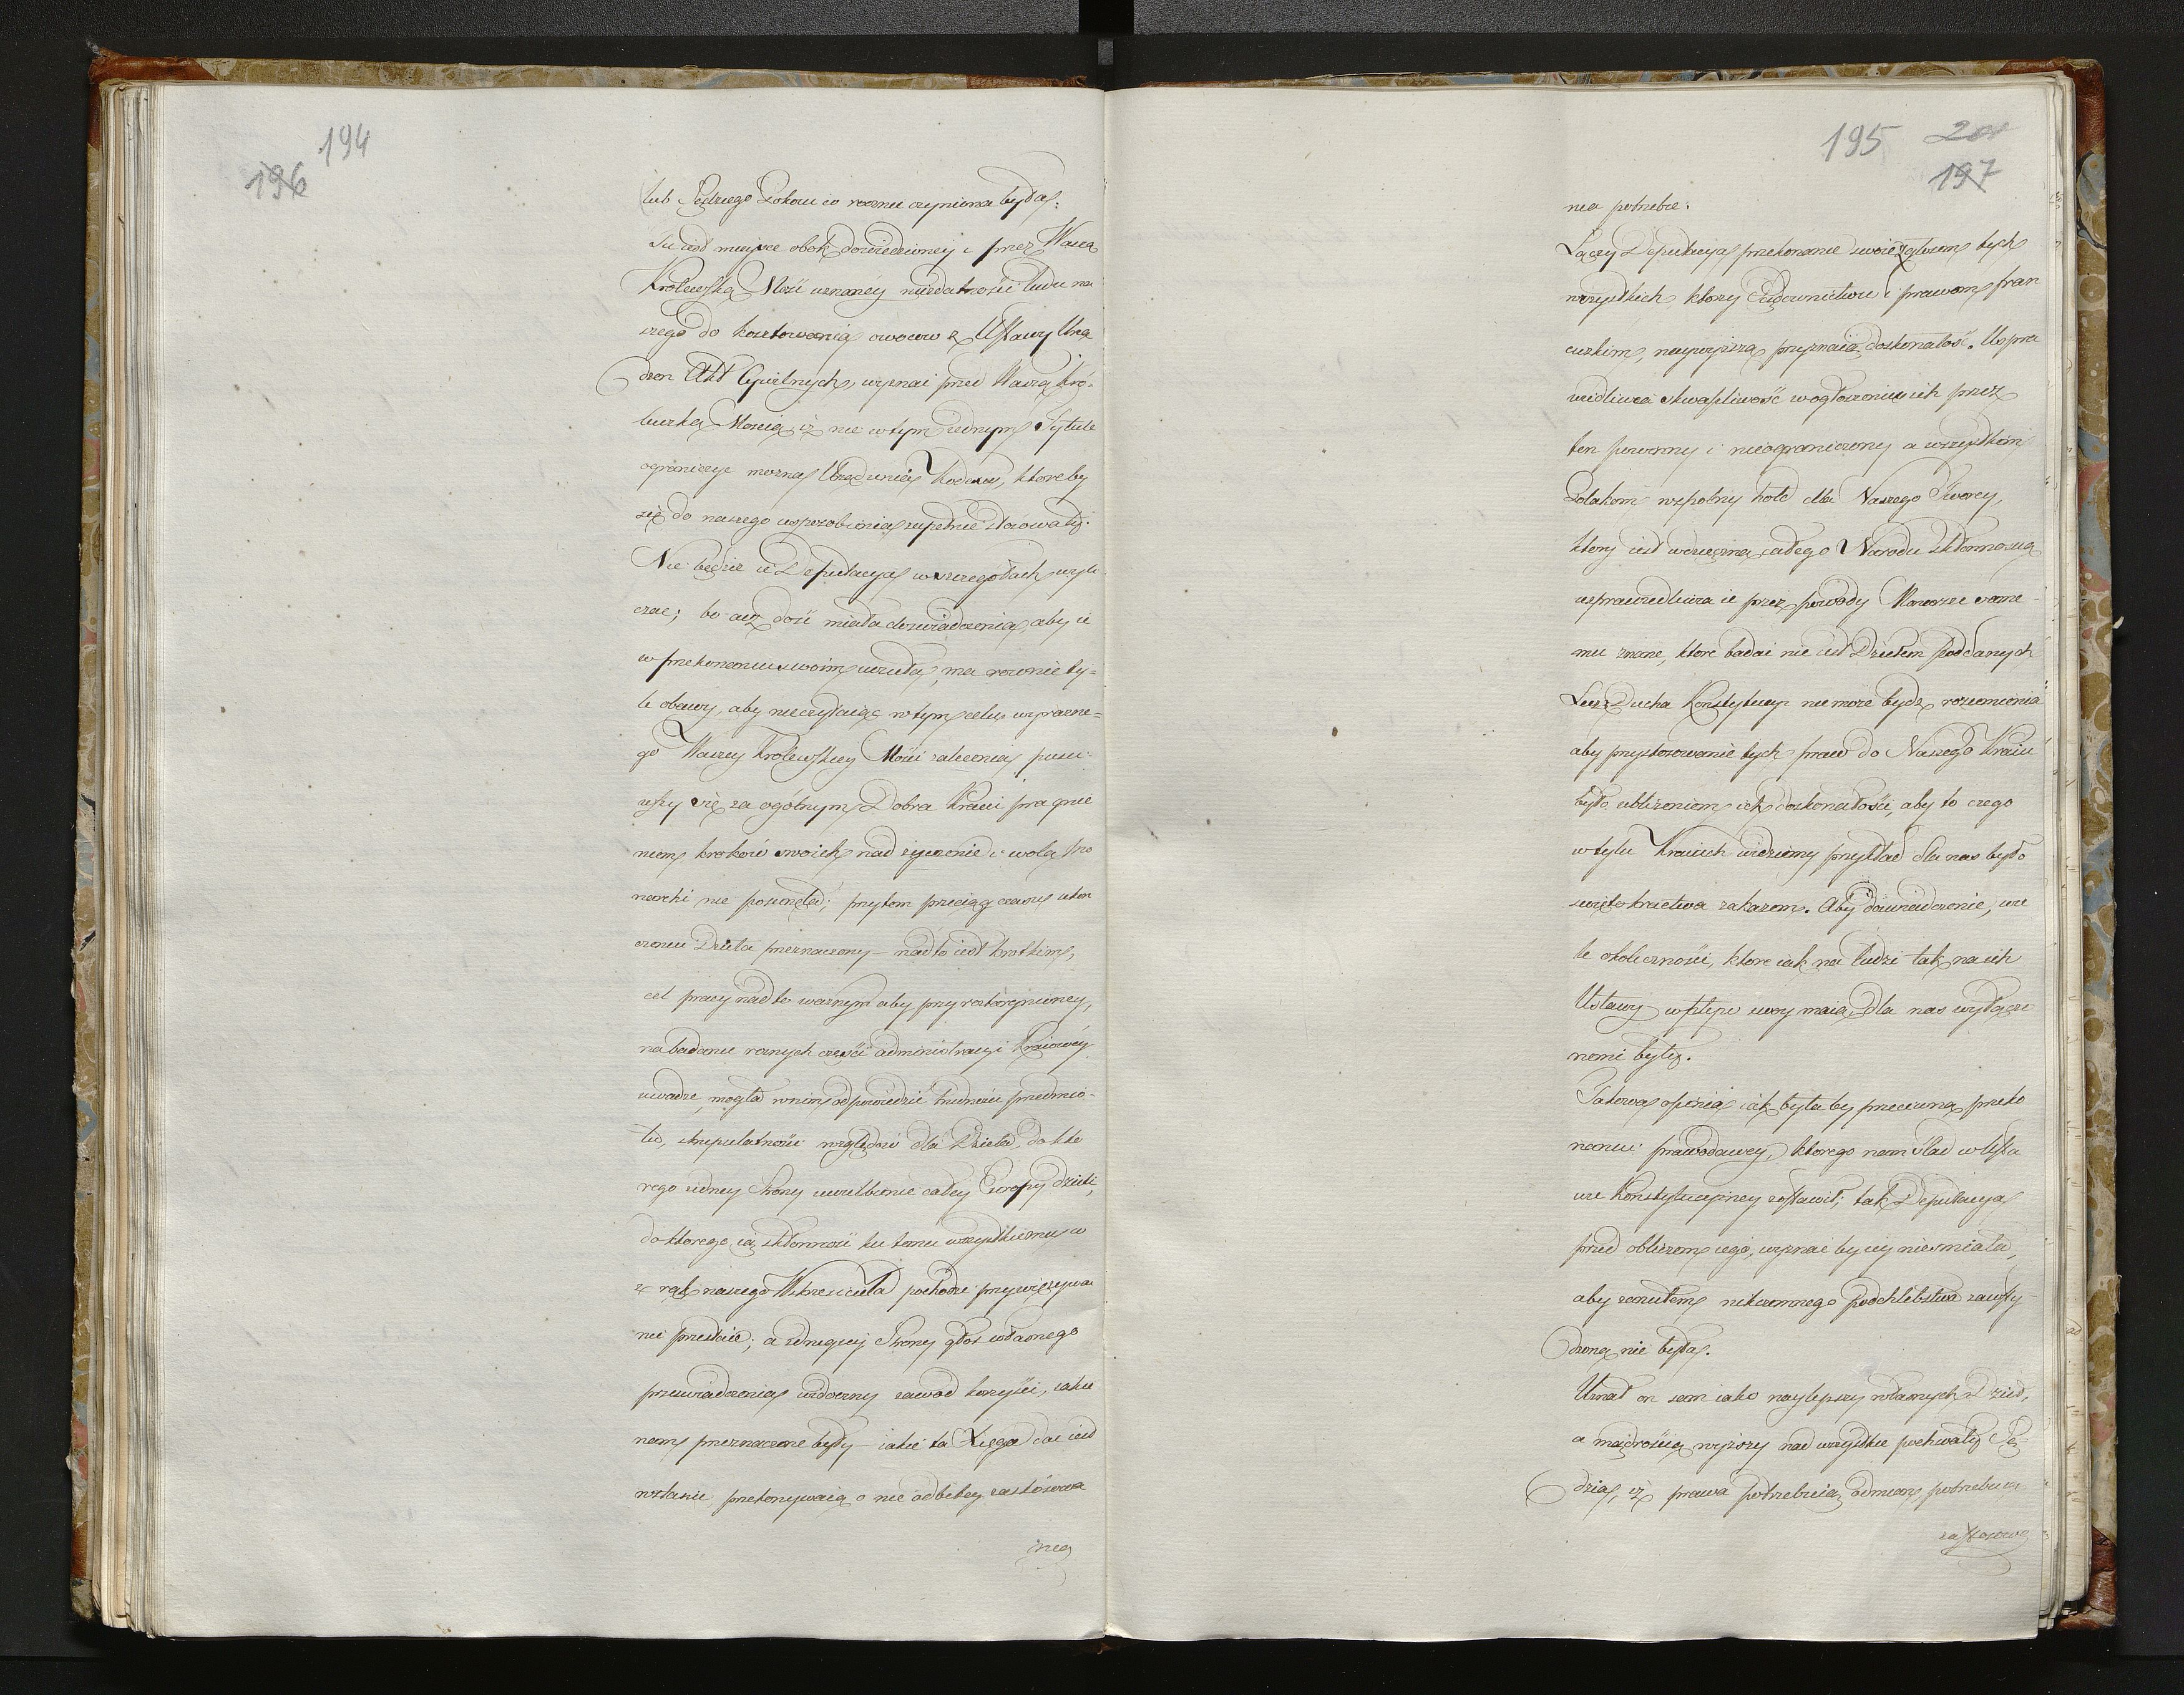 194
196
lub Sędziego Pokoiu co rocznie czyniona była.
Tu iest mieysce obok dowiedzioney i przez Waszą
Krolewską Mość uznanéy niezdatności ludu na
szego do kosztowania owocow z Ustawy Urzę
dzen Akt Cywilnych, wyznać przed Waszą Kró-
lewską Mością, iż nie w tym iednym Tytule
ograniczyć można Urządzenia Kodexu, ktoreby
się do naszego usposobienia zupełnie stósowały.
Nie będzie ie Deputacya w szczegołach wyli
czać; bo acz dość miała doswiadczenia, aby ie
w przekonaniu swoim uczuła, ma rownie ty-
le obawy, aby nie czytaiąc w tym celu wyraźne-
go Waszey Krolewskiey Mości zalecenia, pusci-
wszy się za ogólnym Dobra Kraiu pragnie
niem, krokow swoich nad życzenie i wolą Mo
narchi nie posunęła; przytem przeciąg czasu ukon
czeniu Dzieła przeznaczony – nadto iest krotkim,
cel pracy nadto ważnym aby przy roztargnioney,
na badanie roznych części administracyi Kraiowéy
uwadze, mogła w nim odpowiedzieć trudności przedmio-
tu, skrupulatności względow dla Dzieła, do kto
rego iedney Strony uwielbienie całey Europy dzieli,
do ktorego ią skłonność ku temu wszystkiemu co
z rąk naszego Wskrzesiciela pochodzi przywięzywać
nie przestaie; a z drugiey Strony głos własnego
przeswiadczenia widoczny zawod korzyści, iakie
nam przeznaczone były – iakie ta Xięga dać iest
wstanie, przekonywaią o nie odbitey zastósowa
nia
195
197
nia potrzebie.
Łączy Deputacya przekonanie swoie z głosem tych
wszystkich, ktorzy Cudownictwu i prawom fran
cuzkim, naywyższą przyznaią doskonałość. Uspra
wiedliwia skwapliwość w ogłoszeniu ich przez
ten powinny i nieograniczony a wszystkim
Polakom wspolny hołd dla Naszego Tworcy,
ktory iest wdzięczną całego Narodu skłonnością
usprawiedliwia ie przez powody Monarsze same-
mu znane, ktore badać nie iest Dziełem Poddanych
Lecz Ducha Konstytucyi nie może bydź rozumienia
aby przystosowanie tych praw do Naszego Kraiu
było ubliżeniem ich doskonałości, aby to czego
w tylu Kraiach widziemy przykład dla nas było
swiętokractwa zakazem. Aby doswiadczenie, wie
le okoliczności, ktore iak na ludzi tak na ich
Ustawy wpływ swoy maią, dla nas wyłączo
nemi były.
Takowa opinia iak byłaby przeciwną przeko
naniu prawodawcy, ktorego nam ślad w Usta
wie Konstytucyiney zostawił; tak Deputacya
przed obliczem iego, wyznać by iey nie smiała,
aby zarzutem nikczemnego podchlebstwa zawsty-
dzoną nie była.
Uznał on sam iako naylepszy własnych Dzieł,
a mądrością wyższy nad wszystkie pochwały Sę-
dzia, iż prawa potrzebuią odmian, potrzebuią
zastosowa